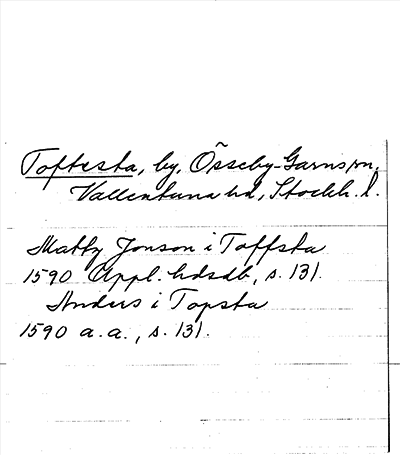 Toftesta, by, Össeby-Garns sn,
Vallentuna hd, Stockh. l.
Matts Jonson i Toffsta
1590 Uppl. hdsdb, s. 131.
Anders i Topsta
1590 a. a., s. 131.